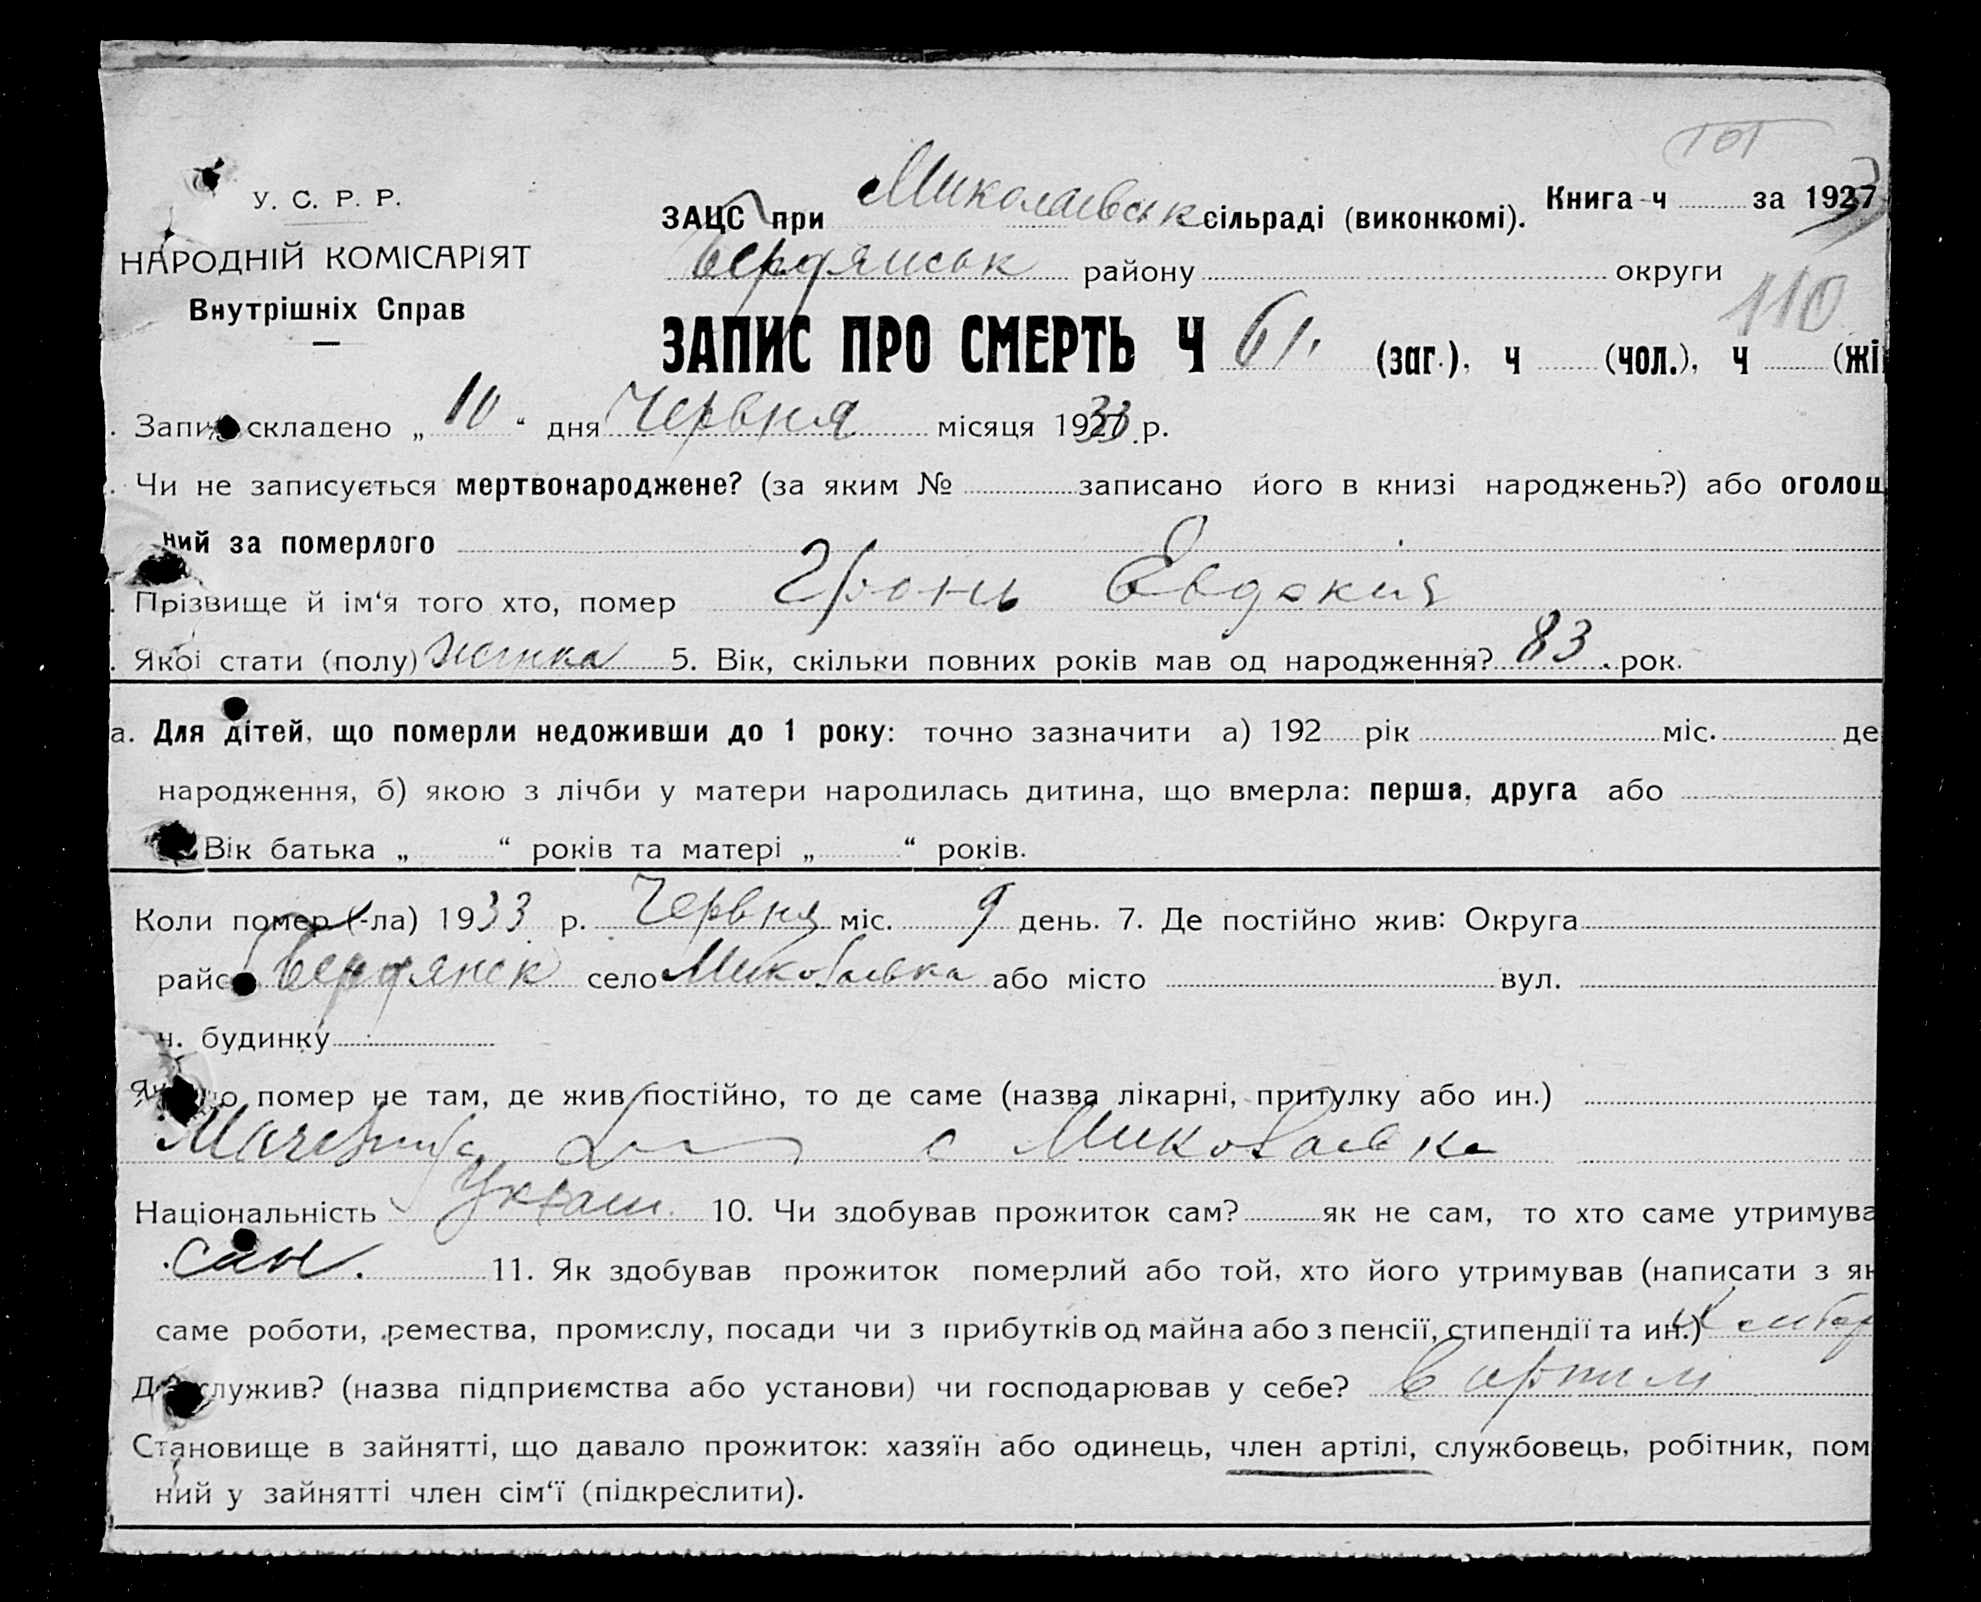 У. С. Р. Р.
НАРОДНІЙ КОМІСАРІЯТ
Внутрішніх Справ
ЗАЦС при Миколаевськ сільраді (виконкомі).
Книга ч за 1927
Бердянськ району округи
110
ЗАПИС ПРО СМЕРТЬ Ч 61. (заг.), ч (чол.), ч (жі
Запис складено „ 10 “ дня Червня місяця 1933 р.
Чи не записується мертвонароджене? (за яким № записано його в книзі народжень?) або оголош
ний за померлого
Прізвище й ім‘я того хто, помер Гронь Евдокия
Якоі стати (полу) жінка 5. Вік, скільки повних років мав од народження? 83 рок.
а. Для дітей, що померли недоживши до 1 року: точно зазначити а) 192 рік міс. де
народження, б) якою з лічби у матери народилась дитина, що вмерла: перша, друга або
Вік батька „ “ років та матері „ “ років.
Коли помер (-ла) 1933 р. Червня міс. 9 день. 7. Де постійно жив: Округа
райо Бердянськ село Миколаевка або місто вул.
ч. будинку
Якщо помер не там, де жив постійно, то де саме (назва лікарні, притулку або ин.)
с Миколаевка
Національність Украін. 10. Чи здобував прожиток сам? як не сам, то хто саме утримува
син. 11. Як здобував прожиток померлий або той, хто його утримував (написати з як
саме роботи, ремества, промислу, посади чи з прибутків од майна або з пенсії, стипендії та ин.)
Де служив? (назва підприємства або установи) чи господарював у себе? в артилі
Становище в зайнятті, що давало прожиток: хазяїн або одинець, член артілі, службовець, робітник, пом
ний у зайнятті член сім‘ї (підкреслити).